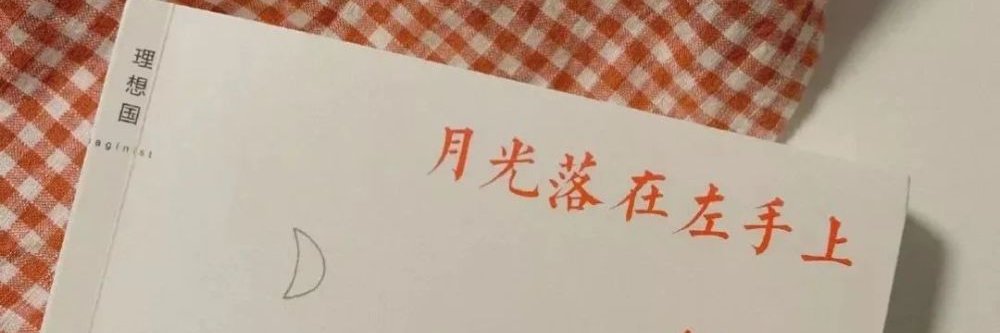 理想国
aginist
月光落在左手上